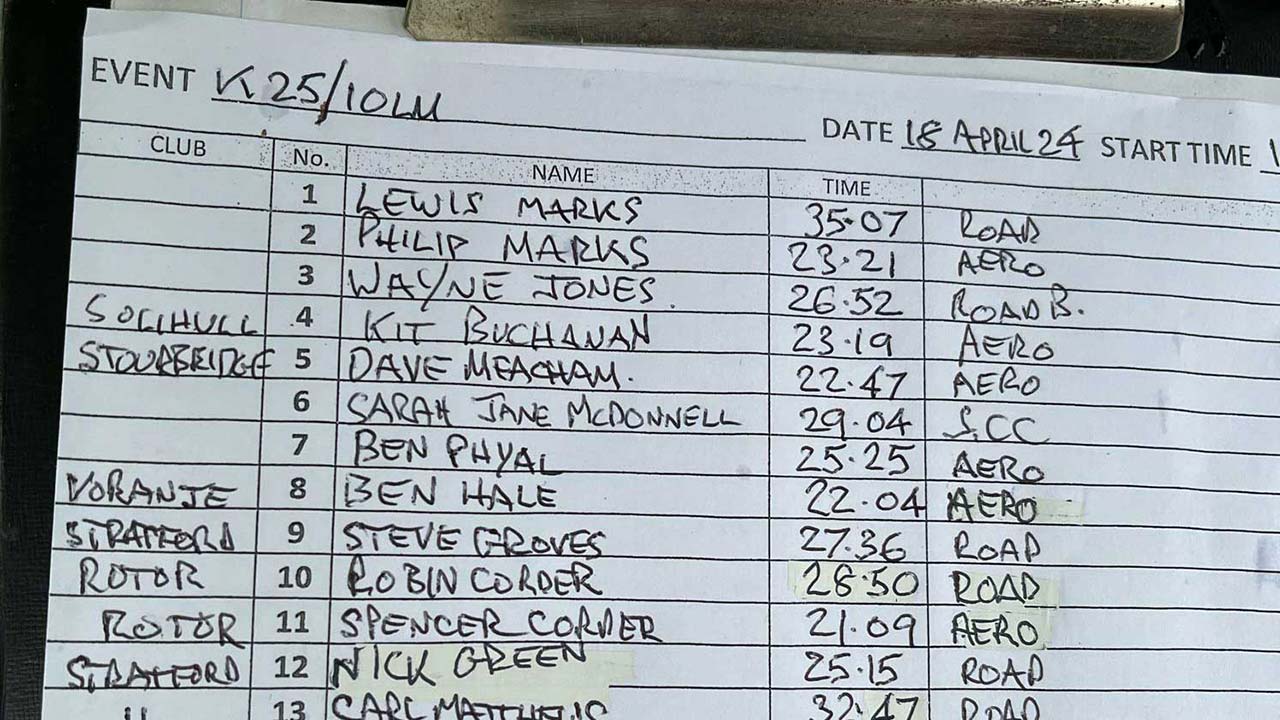 EVENT K25/10LM DATE 18 APRIL 24 START TIME
CLUB No. NAME TIME
1 LEWIS MARKS 35.07 ROAD
2 PHILIP MARKS 23.21 AERO
3 WAYNE JONES. 26.52 ROAD B.
SOLIHULL 4 KIT BUCHANAN 23.19 AERO
STOURBRIDGE 5 DAVE MEACHAM. 22.47 AERO
6 SARAH JANE MCDONNELL 29.04 S.CC
7 BEN PHYAL 25.25 AERO
VORANJE 8 BEN HALE 22.04 AERO
STRATFORD 9 STEVE GROVES 27.36 ROAD
ROTOR 10 ROBIN CORDER 28.50 ROAD
ROTOR 11 SPENCER CORDER 21.09 AERO
STRATFORD 12 NICK GREEN 25.15 ROAD
11 13 CARL MATTHEWS 32.47 ROAD